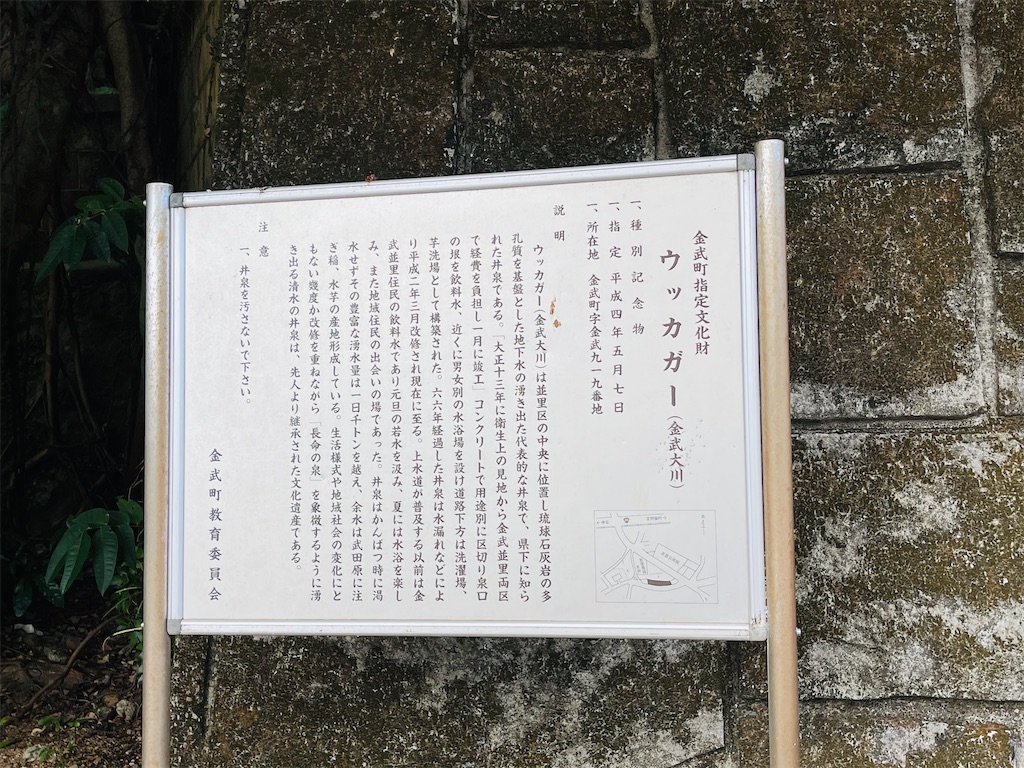 金武町指定文化財
ウッカガー（金武大川）
一、種別 記念物
一、指定 平成四年五月七日
一、所在地 金武町字金武九一九番地
説明
ウッカガー（金武大川）は並里区の中央に位置し琉球石灰岩の多
孔質を基盤とした地下水の湧き出た代表的な井泉で、県下に知ら
れた井泉である。「大正十三年に衛生上の見地から金武並里両区
で経費を負担し一月に竣工」コンクリートで用途別に区切り泉口
の垠を飲料水、近くに男女別の水浴場を設け道路下方は洗濯場、
芋洗場として構築された。六六年経過した井泉は水漏れなどによ
り平成二年三月改修され現在に至る。上水道が普及する以前は金
武並里住民の飲料水であり元旦の若水を汲み、夏には水浴を楽し
み、また地域住民の出会いの場であった。井泉はかんばつ時に渇
水せずその豊富な湧水量は一日千トンを越え、余水は武田原に注
ぎ稲、水芋の産地形成している。生活様式や地域社会の変化にと
もない幾度か改修を重ねながら「長命の泉」を象徴するように湧
き出る清水の井泉は、先人より継承された文化遺産である。
注意
一、井泉を汚さないで下さい。
金武町教育委員会